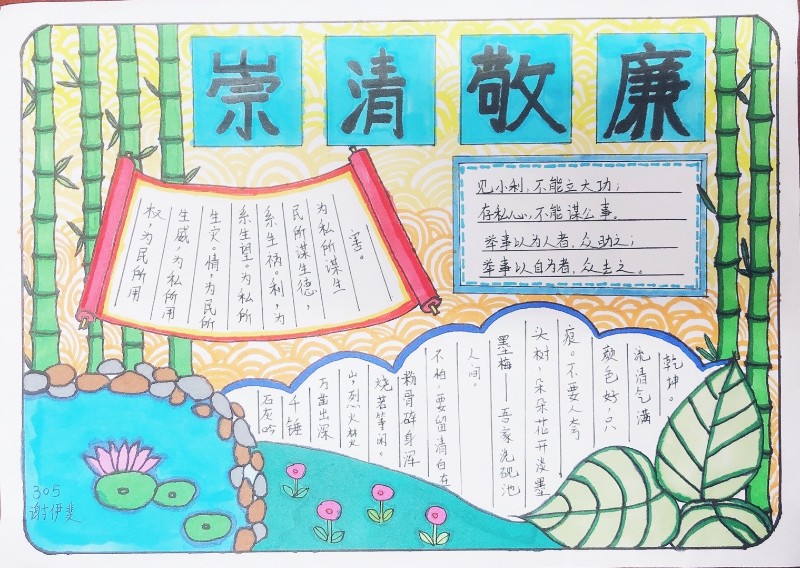 崇清敬廉
权,为民所用
生威,为私所用
生灾。情,为民所
系生望。为私所
系生祸。利,为
民所谋生德,
为私所谋生
害。
见小利,不能立大功;
存私心,不能谋公事。
举事以为人者,众助之;
举事以自为者,众去之。
石灰吟
千锤
万凿出深
山,烈火焚
烧若等闲。
粉骨碎身浑
不怕,要留清白在
人间。
墨梅——吾家洗砚池
头树,朵朵花开淡墨
痕。不要人夸
颜色好,只
流清气满
乾坤。
305
谢伊斐